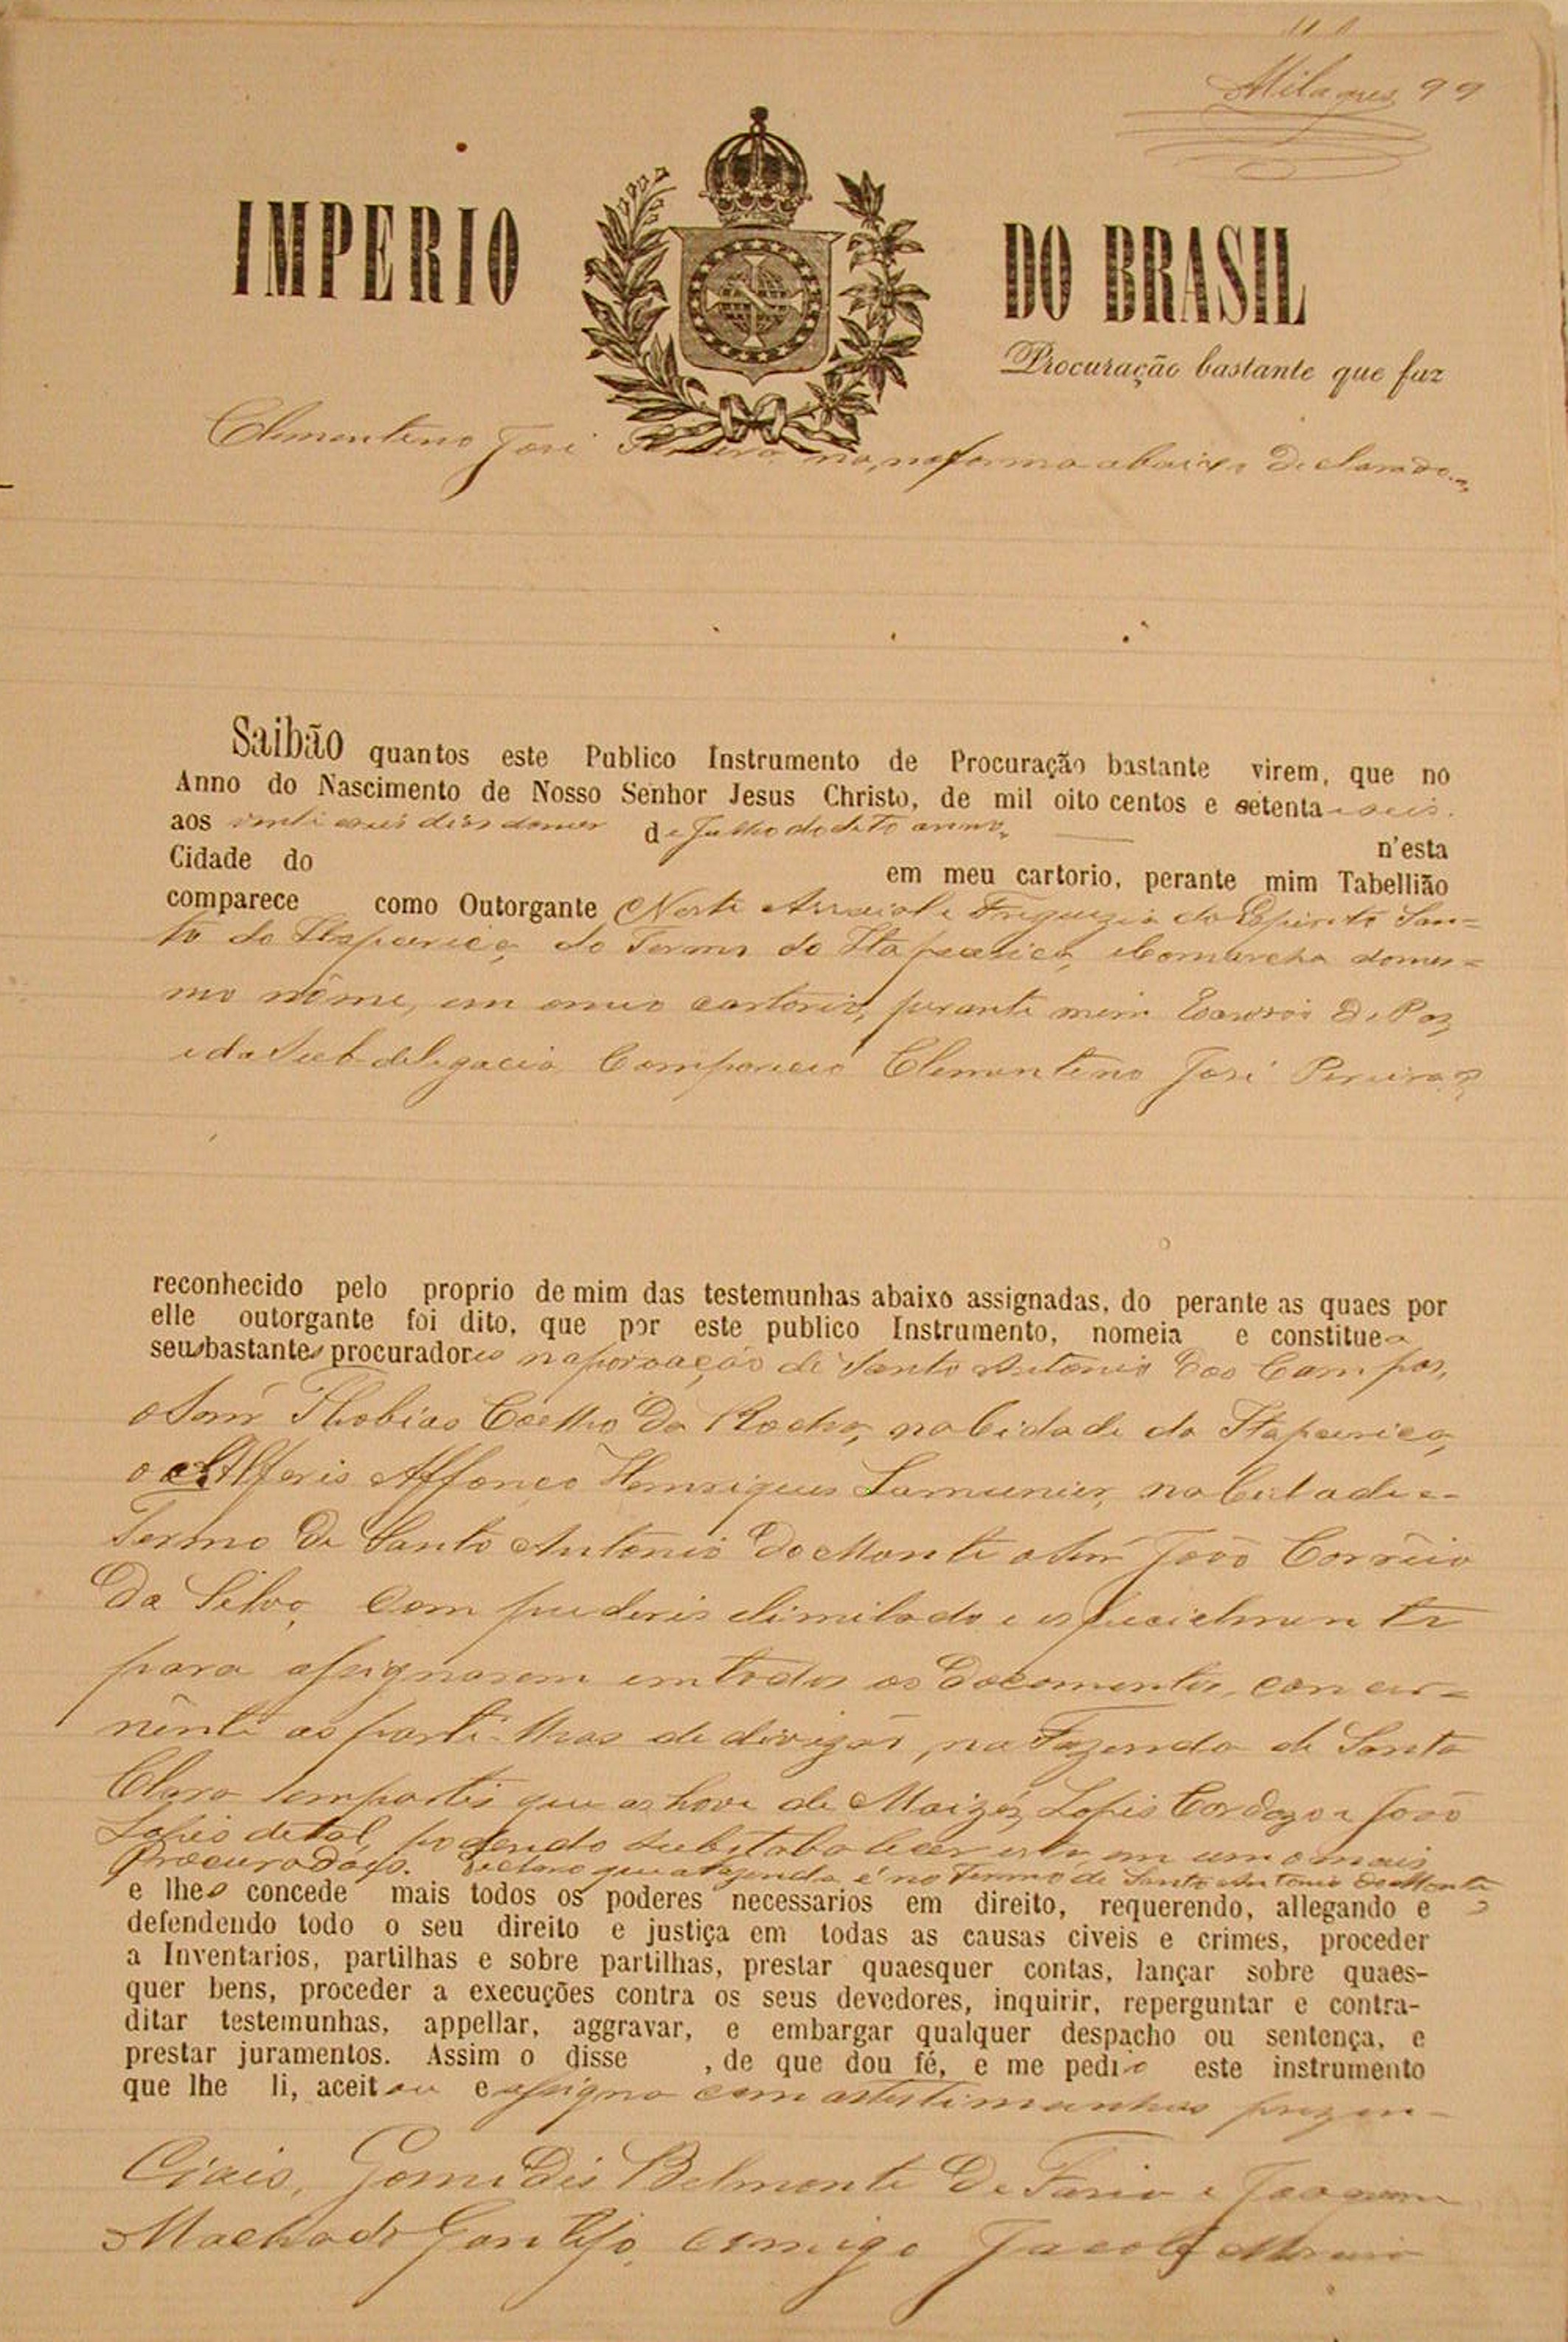 99
IMPERIO DO BRASIL
Procuração bastante que faz
Clementino José na forma abaixo Declarado
Saibão quantos este Publico Instrumento de Procuração bastante virem, que no
Anno do Nascimento de Nosso Senhor Jesus Christo, de mil oito centos e setenta e seis.
aos vinte e seis dias do mes de Julho do dito anno,
n'esta
Cidade do em meu cartorio, perante mim Tabellião
comparece como Outorgante Neste Arraial e Freguezia do Espirito San=
to do Itapecerica, do Termo do Itapecerica, e Comarcha domes=
mo nôme, em meu cartorio, perante mim Escrivão De Paz
e da Subdelegacia Compareceo Clementino José Pereira
reconhecido pelo proprio de mim das testemunhas abaixo assignadas, do perante as quaes por
elle outorgante foi dito, que por este publico Instrumento, nomeia e constitue
seus bastantes procuradores na povoação de Santo Antonio dos Campos,
o Senr Thobias Coelho Da Rocha, na Cidade do Itapecerica,
o Alferis Affonço Henriques na Cidade e
Termo De Santo Antonio Do Monte o Senr João Corrêia
Da Silva, Com puderis elimitado e especielmente
para assignarem em todos os Documentos, concer=
nênte as partilhas de divizão, na Fazenda de Santa
Clara com partis que as hove de Moizés Lopis Cardozo e João
Lopis de tal, podendo substabalecer esta, em um o mais
Procuradôrs. Declaro que a Fazenda é no Termo de Santo Antonio Do Monte
e lhes concede mais todos os poderes necessarios em direito, requerendo, allegando e
defendendo todo o seu direito e justiça em todas as causas civeis e crimes, proceder
a Inventarios, partilhas e sobre partilhas, prestar quaesquer contas, lançar sobre quaes-
quer bens, proceder a execuções contra os seus devedores, inquirir, reperguntar e contra-
ditar testemunhas, appellar, aggravar, e embargar qualquer despacho ou sentença, e
prestar juramentos. Assim o disse , de que dou fé, e me pedio este instrumento
que lhe li, aceitou e assigna com as testimunhas prezen=
Ciais, Gomidis Belmonte De Faria e Joaquim
Machado Gontijo, comigo Jacob